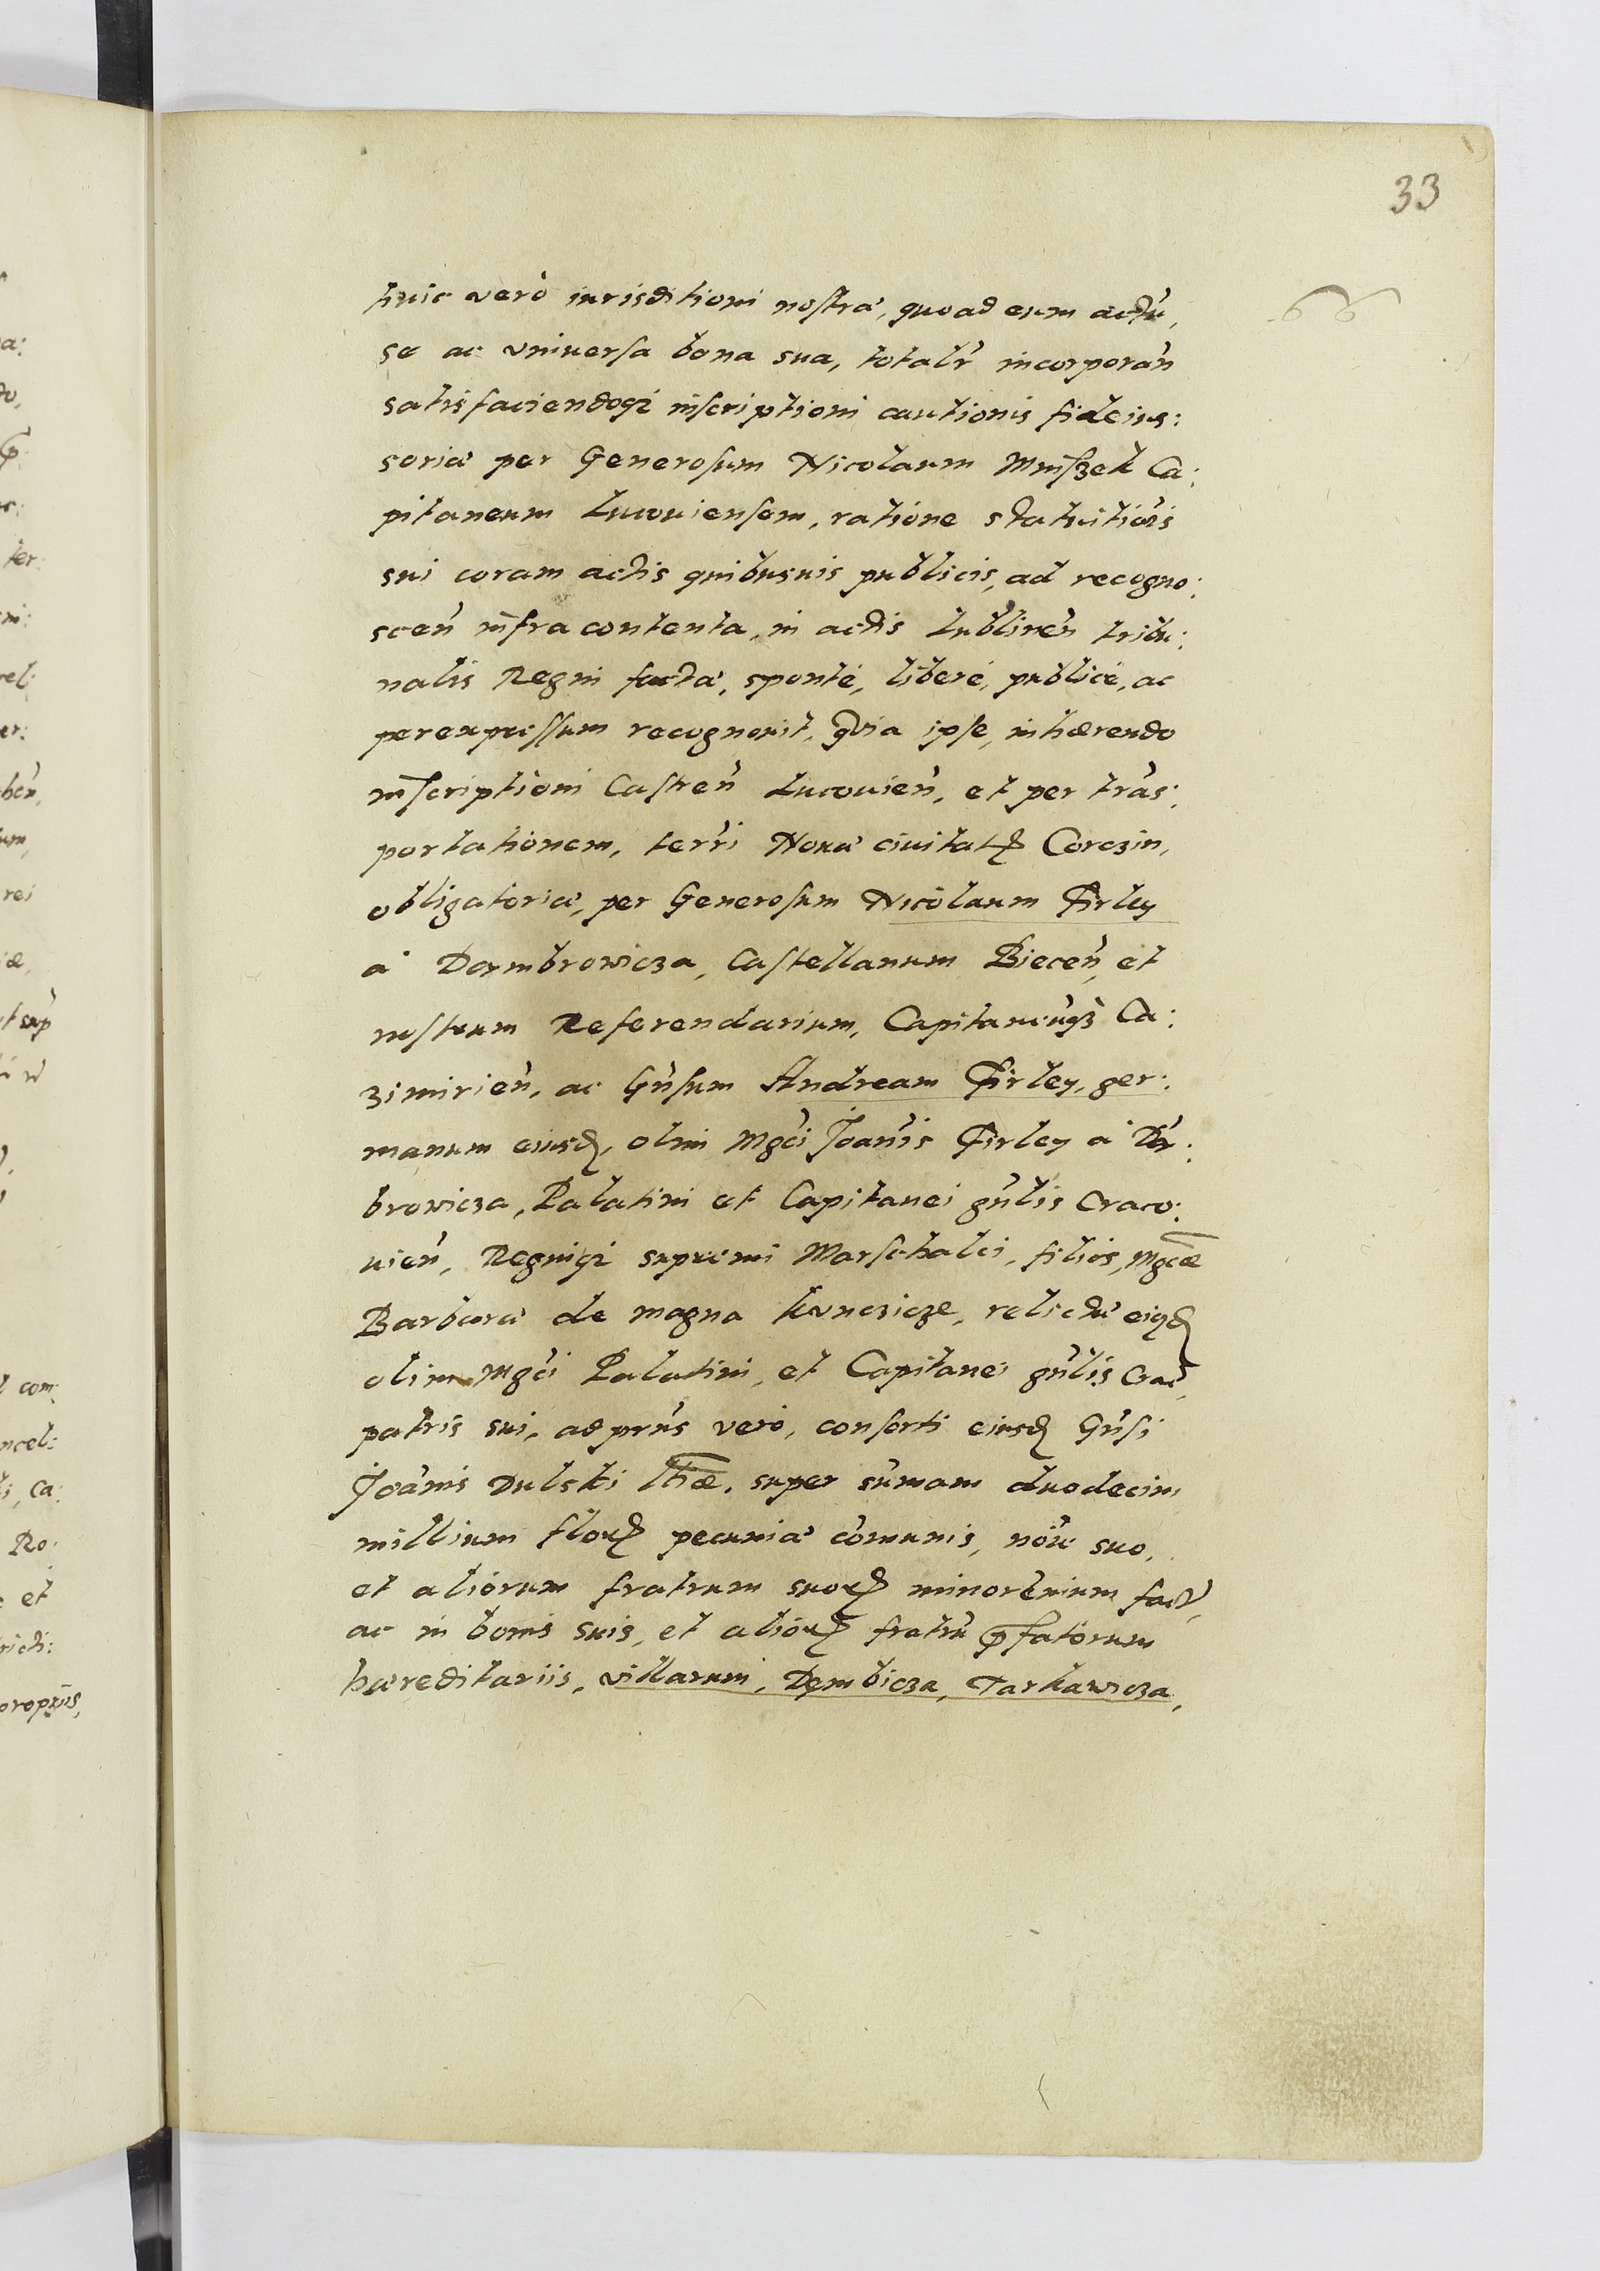 33
huic verò iurisditioni nostræ, quoad eum actũ,
se ac vniuersa bona sua, totalr̃ incorporan̄
satisfaciendoq; inscriptioni cautionis fideius:
soriæ per Generosum Nicolaum Mnisek Ca:
pitaneum Lucouiensem, ratione statuitiõis
sui coram actis quibusuis publicis, ad recogno:
scen̄ infra contenta, in actis Lublinen̄ tribu:
nalis Regni factæ, sponté, liberé, publicé, ac
per expressum recognouit, Quia ipse, inhærendo
inscriptioni Castren̄ Lucouien̄, et per trãs:
portationem, terr̃i Nouæ ciuitatę Corczin,
obligatoriæ, per Generosum Nicolaum Firley
à Dąmbrowicza, Castellanum Biecen̄, et
nostrum Referendarium, Capitaneũq; Ca:
zimirien̄, ac Gñsum Andream Firley, ger:
manum eiusd, olim Mgci Joañis Firley à Dą:
browicza, Palatini et Capitanei gñlis Craco:
uien̄, Regniq; supremi Marschalci, filios, Mgcæ
Barbaræ de magna Kunczicze, relictæ eiusd
olim Mgci Palatini, et Capitanei gñlis Crac̄,
patris sui, ad prñs verò, consorti eiusd Gñsi
Joãnis Dulski super sum̃am duodecim
millium flor pecuniæ com̃unis, noĩe suo,
et aliorum fratrum suor minorenium fact̃,
ac in bonis suis, et alior fratrũ p̄fatorum
hæreditariis, villarum, Dęmbicza, Tarkawicza,